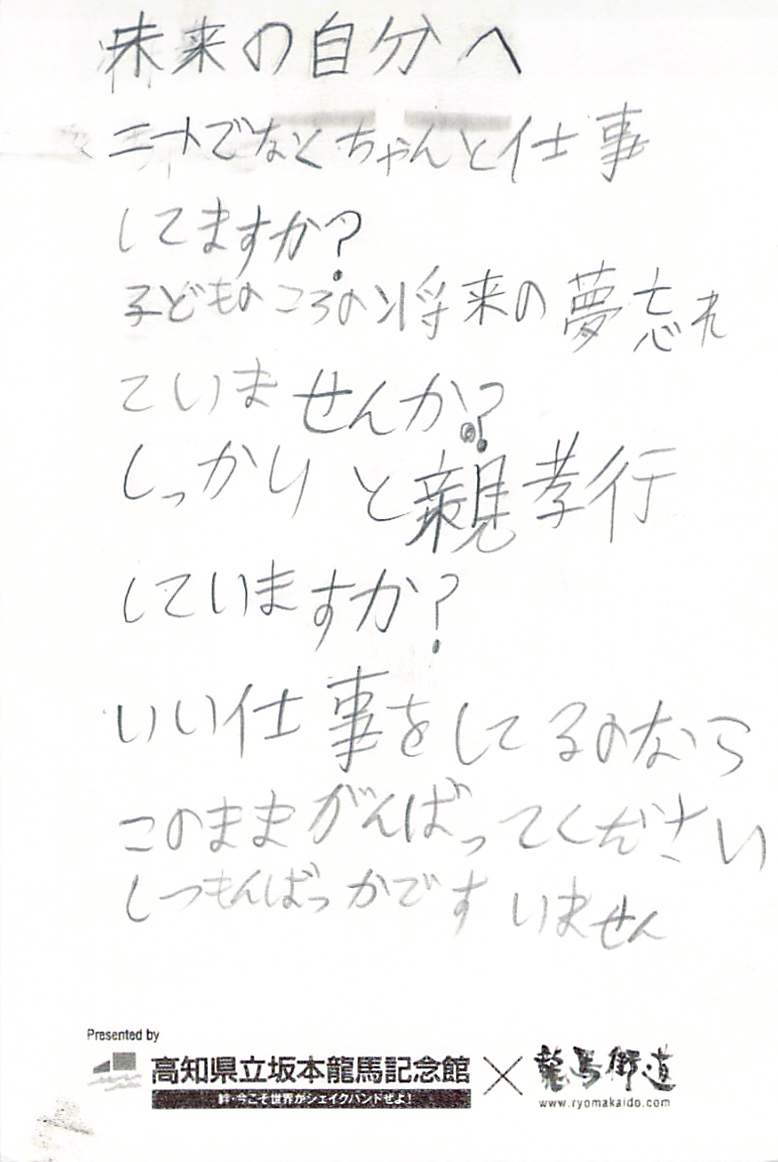 未来の自分へ
ニートでなくちゃんと仕事
してますか?
子どものころの将来の夢忘れ
ていませんか?
しっかりと親孝行
していますか?
いい仕事をしてるのなら
このままがんばってください
しつもんばっかですいません
Presented by
高知県立坂本龍馬記念館×龍馬街道
絆・今こそ世界がシェイクハンドせよ!
www.ryomakaido.com